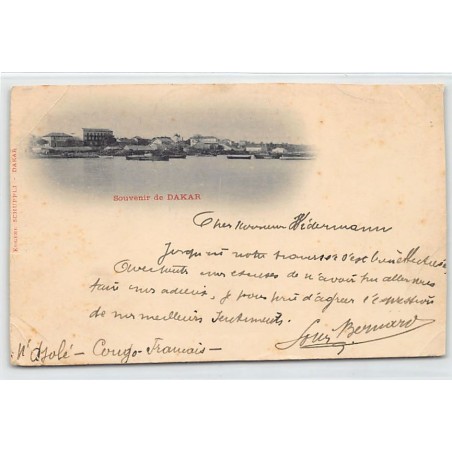 Souvenir de DAKAR
SCHUPPLI - DAKAR
Cher Monsieur Widermann
Jusqu'ici notre traversée s'est
mes excuses de n'avoir pu aller vous
faire mes adieux, je vous prie d'agréer l'expression
de mes meilleurs sentiments.
Bernard
N'djolé - Congo-Français -